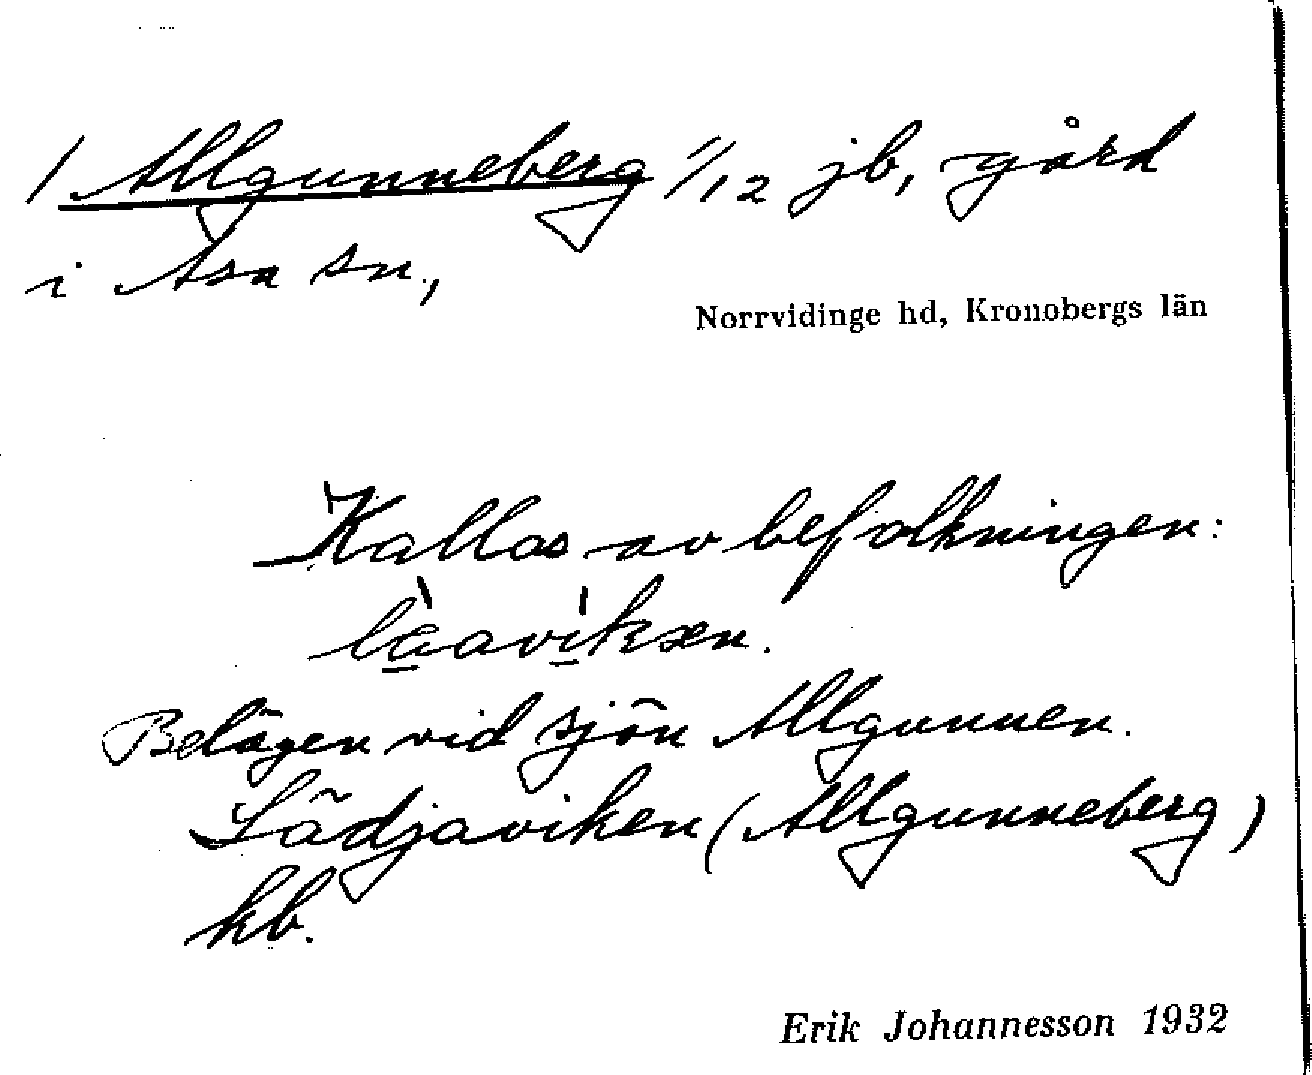 / Allgunneberg 1/12 jb, gård
i Asa sn.,
Norrvidinge hd, Kronobergs län
Kallas av befolkningen:
Belägen vid sjön Allgunnen.
Lädjaviken (Allgunneberg)
kb.
Erik Johannesson 1932